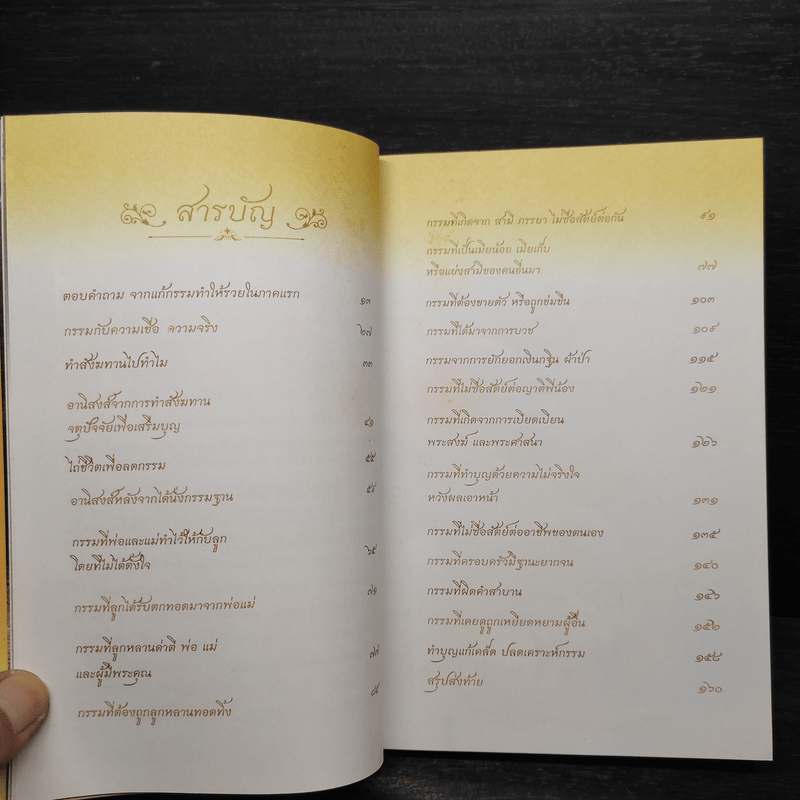 สารบัญ
ตอบคำถาม จากแก้กรรมทำให้รวยในภาคแรก ๑๓
กรรมกับความเชื่อ ความจริง ๒๗
ทำสังฆทานไปทำไม ๓๓
อานิสงส์จากการทำสังฆทาน
จตุปัจจัยเพื่อเสริมบุญ ๔๑
ไถ่ชีวิตเพื่อลดกรรม ๕๕
อานิสงส์หลังจากได้นั่งกรรมฐาน ๕๙
กรรมที่พ่อและแม่ทำไว้ให้กับลูก
โดยที่ไม่ได้ตั้งใจ ๖๕
กรรมที่ลูกได้รับตกทอดมาจากพ่อแม่ ๗๑
กรรมที่ลูกหลานด่าตี พ่อ แม่
และผู้มีพระคุณ ๗๗
กรรมที่ต้องถูกลูกหลานทอดทิ้ง ๘๕
กรรมที่เกิดจาก สามี ภรรยา ไม่ซื่อสัตย์ต่อกัน ๙๑
กรรมที่เป็นเมียน้อย เมียเก็บ
หรือแย่งสามีของคนอื่นมา ๙๗
กรรมที่ต้องขายตัว หรือถูกข่มขืน ๑๐๓
กรรมที่ได้มาจากการบวช ๑๐๙
กรรมจากการยักยอกเงินกฐิน ผ้าป่า ๑๑๕
กรรมที่ไม่ซื่อสัตย์ต่อญาติพี่น้อง ๑๒๑
กรรมที่เกิดจากการเบียดเบียน
พระสงฆ์ และพระศาสนา ๑๒๖
กรรมที่ทำบุญด้วยความไม่จริงใจ
หวังผลเอาหน้า ๑๓๑
กรรมที่ไม่ซื่อสัตย์ต่ออาชีพของตนเอง ๑๓๕
กรรมที่ครอบครัวมีฐานะยากจน ๑๔๐
กรรมที่ผิดคำสาบาน ๑๔๖
กรรมที่เคยดูถูกเหยียดหยามผู้อื่น ๑๕๒
ทำบุญแก้เคล็ด ปลดเคราะห์กรรม ๑๕๘
สรุปส่งท้าย ๑๖๐